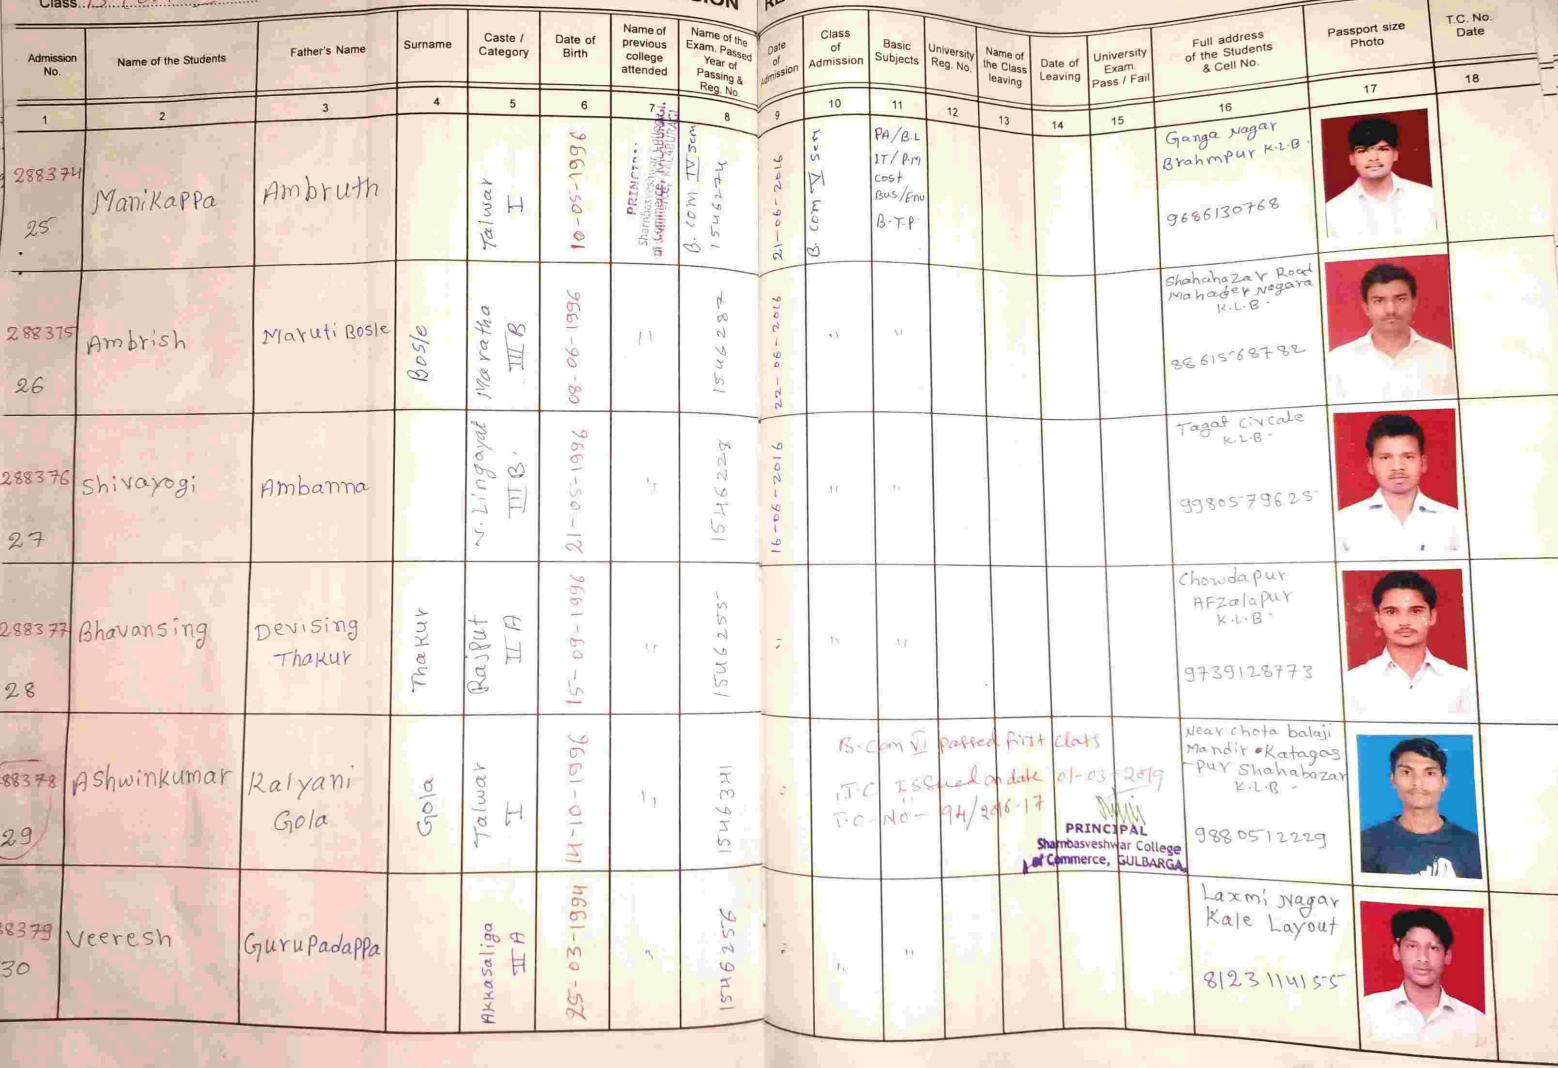 Class
Admission No.
Name of the Students
Father's Name
Surname
Caste / Category
Date of Birth
Name of previous college attended
Name of the Exam. Passed Year of Passing & Reg. No.
Date of Admission
Class of Admission
Basic Subjects
University Reg. No.
Name of the Class leaving
Date of Leaving
University Exam. Pass / Fail
Full address of the Students & Cell No.
Passport size Photo
T.C. No. Date
1 2 3 4 5 6 7 8 9 10 11 12 13 14 15 16 17 18
288374
25
Manikappa
Ambruth
Talwar
I
10-05-1996
PRINCIPAL
B. com IV sem
1546274
21-06-2016
B. com V sem
PA/B.L
IT/P.M
Cost
Bus/Env
B.T.P
Ganga Nagar
Brahmpur K.L.B.
9686130768
288375
26
Ambrish
Maruti Bosle
Bosle
Maratha
III B
08-06-1996
"
1546287
22-06-2016
"
"
Shahabazar Road
Mahadev Nagara
K.L.B.
8861568782
288376
27
Shivayogi
Ambanna
V. Lingayat
III B.
21-05-1996
"
1546228
16-06-2016
"
"
Tagat Circale
K.L.B.
9980579625
288377
28
Bhavansing
Devising
Thakur
Thakur
Rajput
II A
15-09-1996
"
1546255
"
"
"
Chowdapur
AFzalapur
K.L.B.
9739128773
88378
29
Ashwinkumar
Kalyani
Gola
Gola
Talwar
I
14-10-1996
"
1546341
"
B.Com VI passed first class
T.C Issued on date 01-03-2019
T.C-No- 94/2016-17
PRINCIPAL
Sharnbasveshwar College
of Commerce, GULBARGA.
Near chota balaji
Mandir Katagar
Pur Shahabazar
K.L.B.
9880512229
8379
30
Veeresh
Gurupadappa
Akkasaliga
II A
25-03-1994
"
1546256
"
"
"
Laxmi Nagar
Kale Layout
8123114155